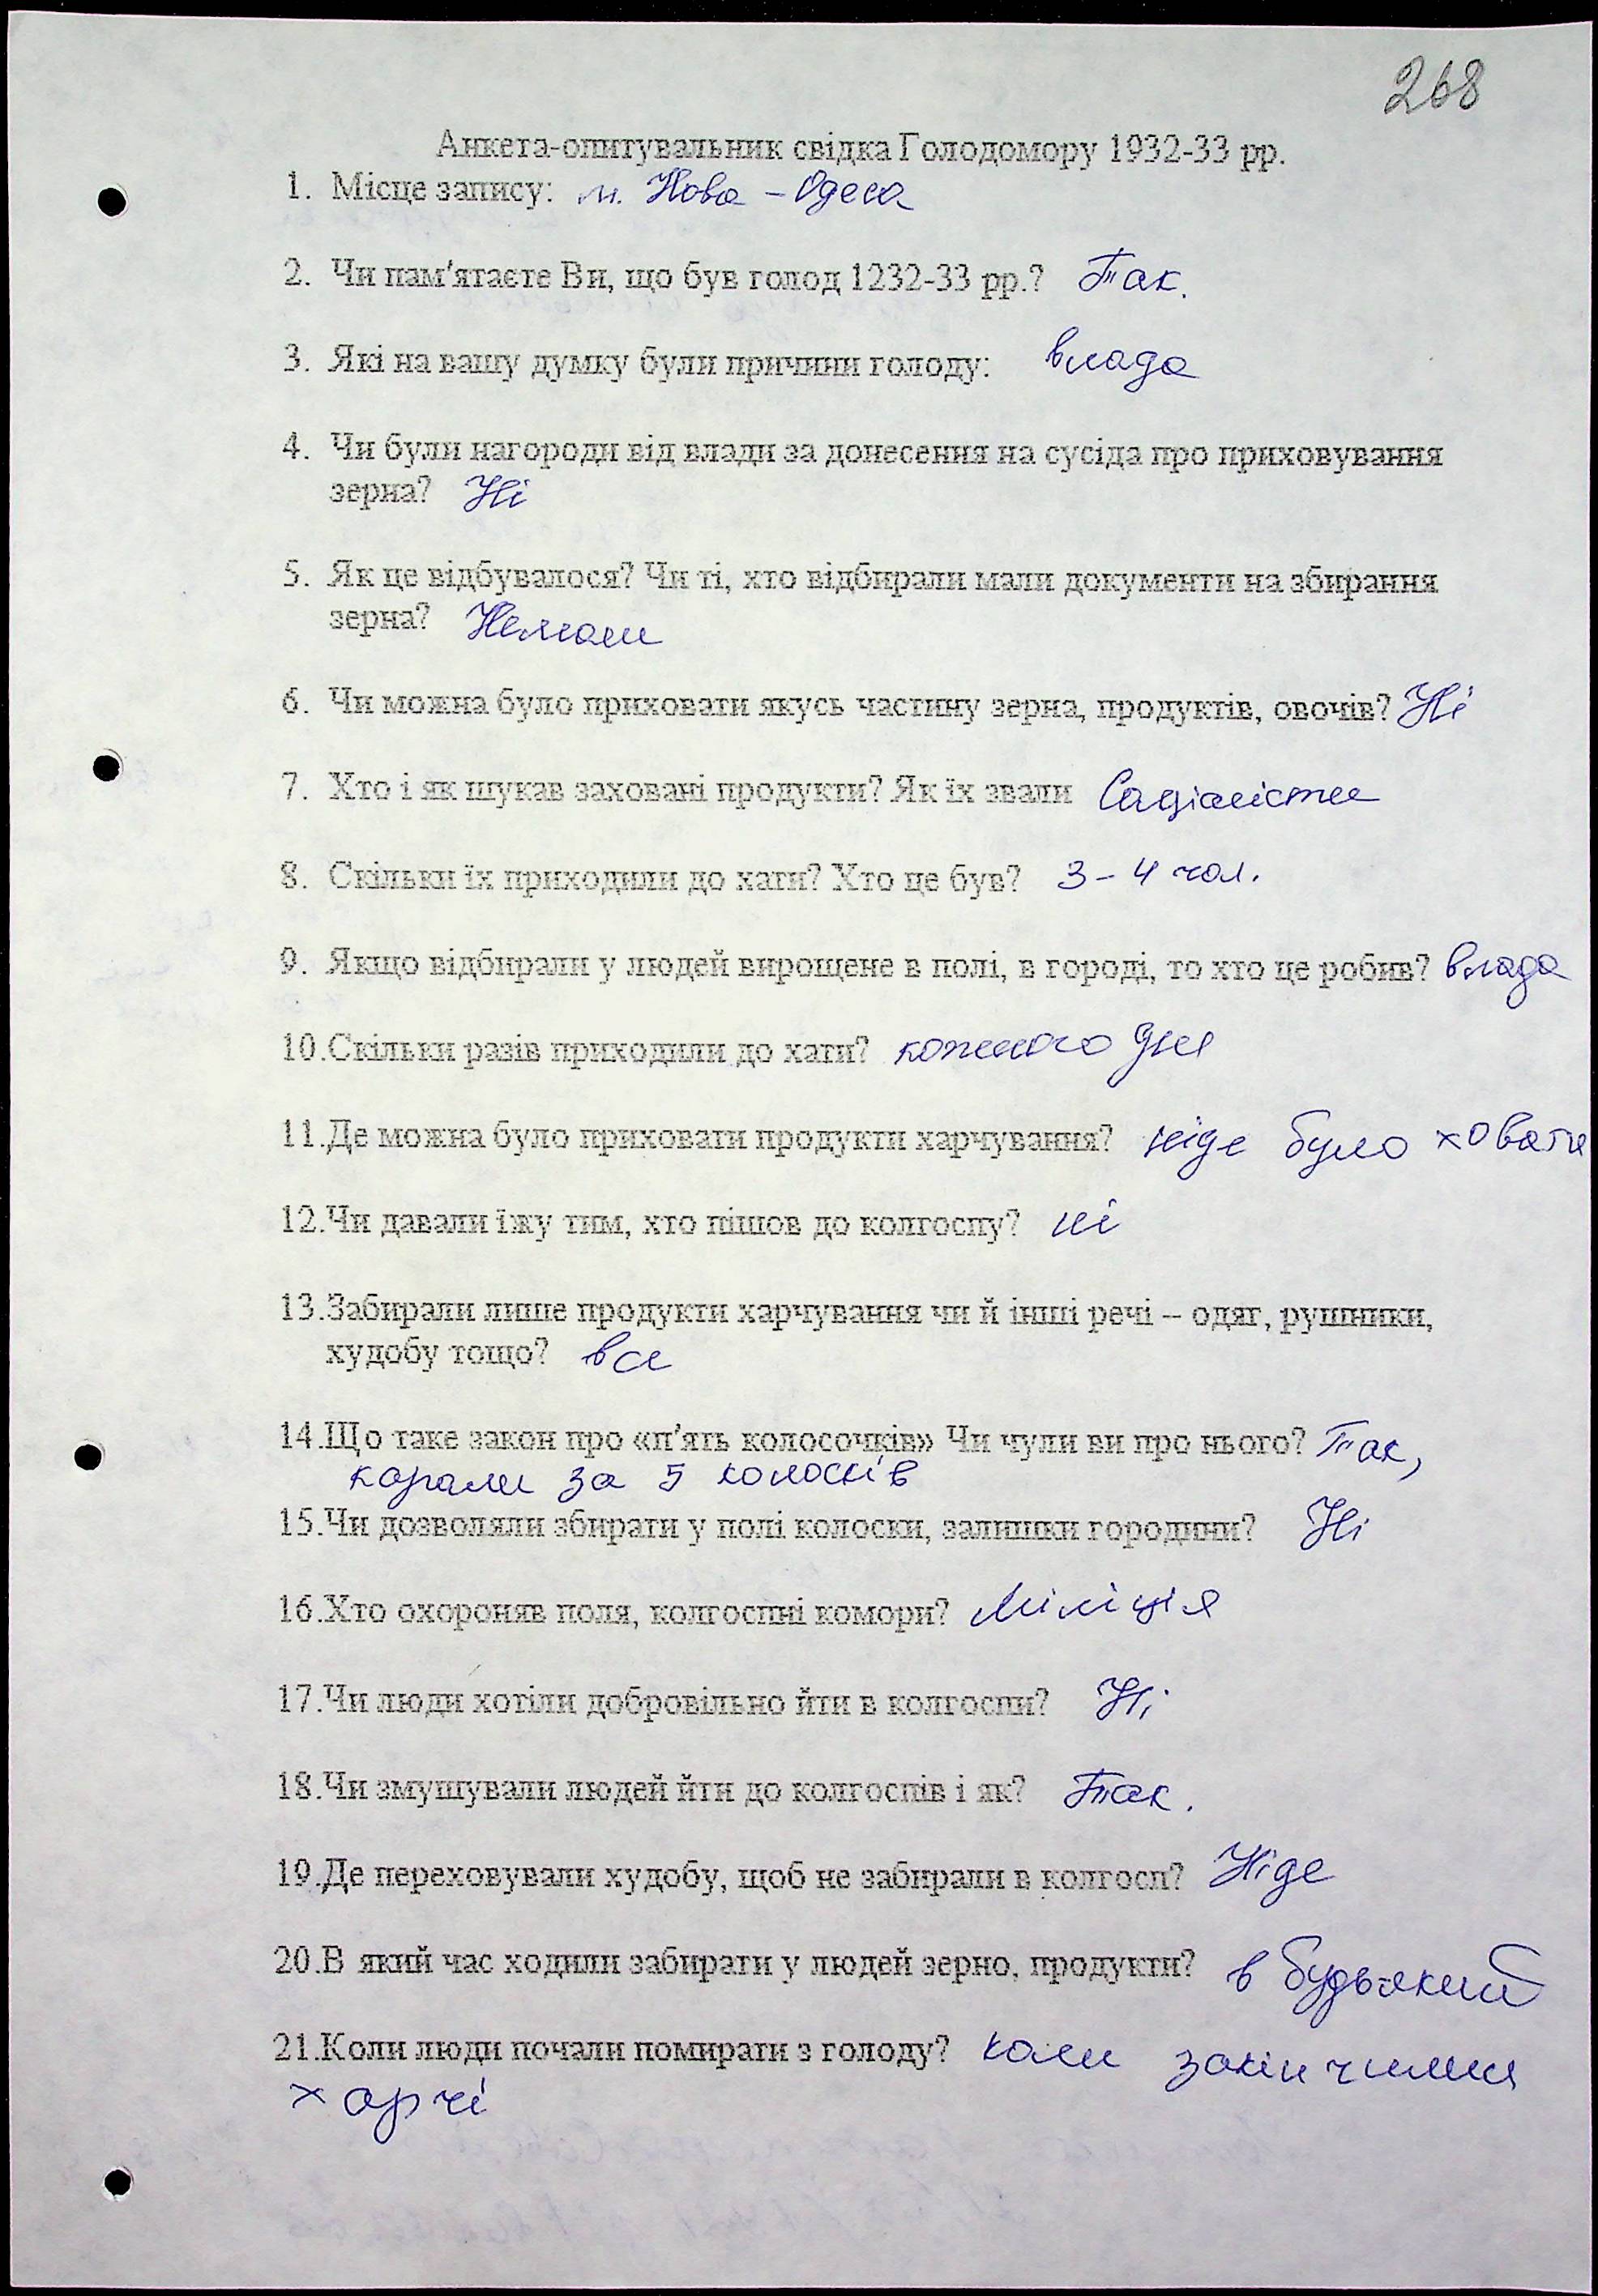 268
Анкета-опитувальник свідка Голодомору 1932-33 рр.
1. Місце запису: м. Нова - Одеса
2. Чи пам'ятаєте Ви, що був голод 1232-33 рр.? Так.
3. Які на вашу думку були причини голоду: влада
4. Чи були нагороди від влади за донесення на сусіда про приховування
зерна? Ні
5. Як це відбувалося? Чи ті, хто відбирали мали документи на збирання
зерна? Немали
6. Чи можна було приховати якусь частину зерна, продуктів, овочів? Ні
7. Хто і як шукав заховані продукти? Як їх звали Соціалісти
8. Скільки їх приходили до хати? Хто це був? 3-4 чол.
9. Якщо відбирали у людей вирощене в полі, в городі, то хто це робив? влада
10.Скільки разів приходили до хати? кожного дня
11.Де можна було приховати продукти харчування? ніде було ховати
12.Чи давали їжу тим, хто пішов до колгоспу? ні
13.Забирали лише продукти харчування чи й інші речі – одяг, рушники,
худобу тощо? все
14.Що таке закон про «п'ять колосочків» Чи чули ви про нього? Так,
карали за 5 колосків
15.Чи дозволяли збирати у полі колоски, залишки городини? Ні
16.Хто охороняв поля, колгоспні комори? Міліція
17.Чи люди хотіли добровільно йти в колгоспи? Ні
18.Чи змушували людей йти до колгоспів і як? Так.
19.Де переховували худобу, щоб не забирали в колгосп? Ніде
20.В який час ходили забирати у людей зерно, продукти? в будь-який
21.Коли люди почали помирати з голоду? коли закінчилися
харчі